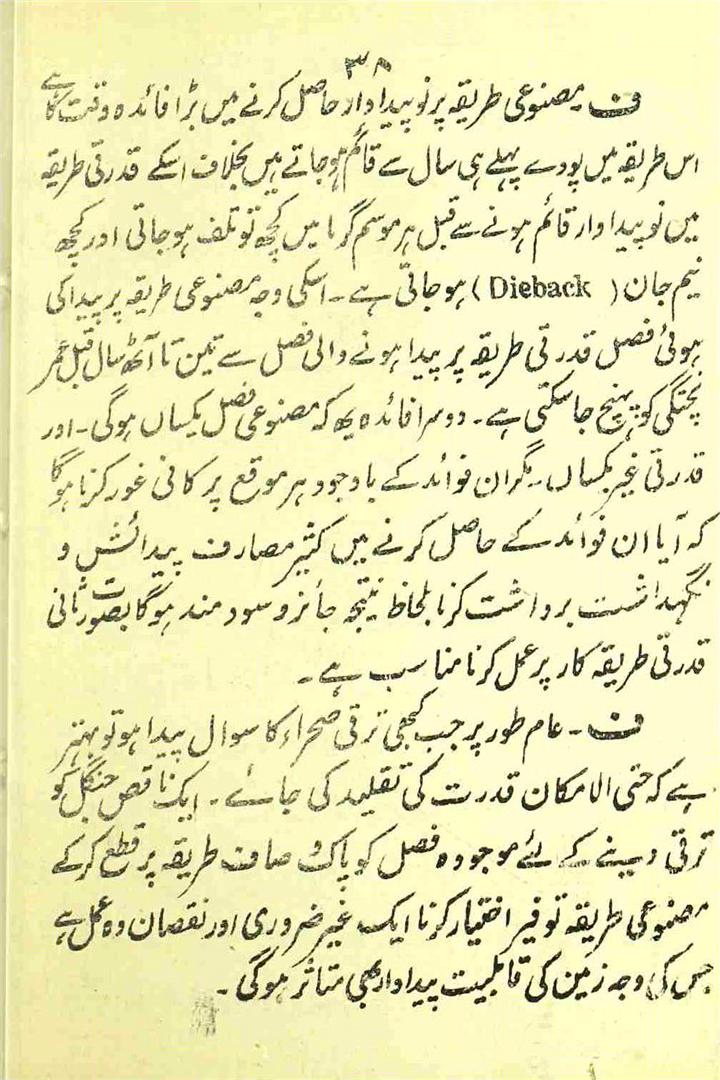 ۳۸
ف مصنوعی طریقہ پر نو پیداوار حاصل کرنے میں بڑا فائدہ وقت کا ہے
اس طریقہ میں پودے پہلے ہی سال سے قائم ہو جاتے ہیں بخلاف اسکے قدرتی طریقہ
میں نو پیداوار قائم ہونے سے قبل ہر موسم گرما میں کچھ تو تلف ہو جاتی اور کچھ
نیم جان ( Dieback ) ہو جاتی ہے ۔ اسکی وجہ مصنوعی طریقہ پر پیدا کی
ہوئی فصل قدرتی طریقہ پر پیدا ہونے والی فصل سے تین تا آٹھ سال قبل عمر
پختگی کو پہنچ جاسکتی ہے ۔ دوسرا فائدہ یہ کہ مصنوعی فصل یکساں ہوگی ۔ اور
قدرتی غیر یکساں ۔ مگر ان فوائد کے باوجود ہر موقع پر کافی غور کرنا ہوگا
کہ آیا ان فوائد کے حاصل کرنے میں کثیر مصارف پیدائش و
نگہداشت برداشت کرنا بلحاظ نتیجہ جائز و سود مند ہوگا بصورت ثانی
قدرتی طریقہ کار پر عمل کرنا مناسب ہے ۔
ف ۔ عام طور پر جب کبھی ترقی صحراء کا سوال پیدا ہو تو بہتر
ہے کہ حتی الامکان قدرت کی تقلید کی جائے ۔ ایک ناقص جنگل کو
ترقی دینے کے لئے موجودہ فصل کو پاک صاف طریقہ پر قطع کرکے
مصنوعی طریقہ توفیر اختیار کرنا ایک غیر ضروری اور نقصان دہ عمل ہے
جس کی وجہ زمین کی قابلیت پیداوار بھی متاثر ہوگی ۔